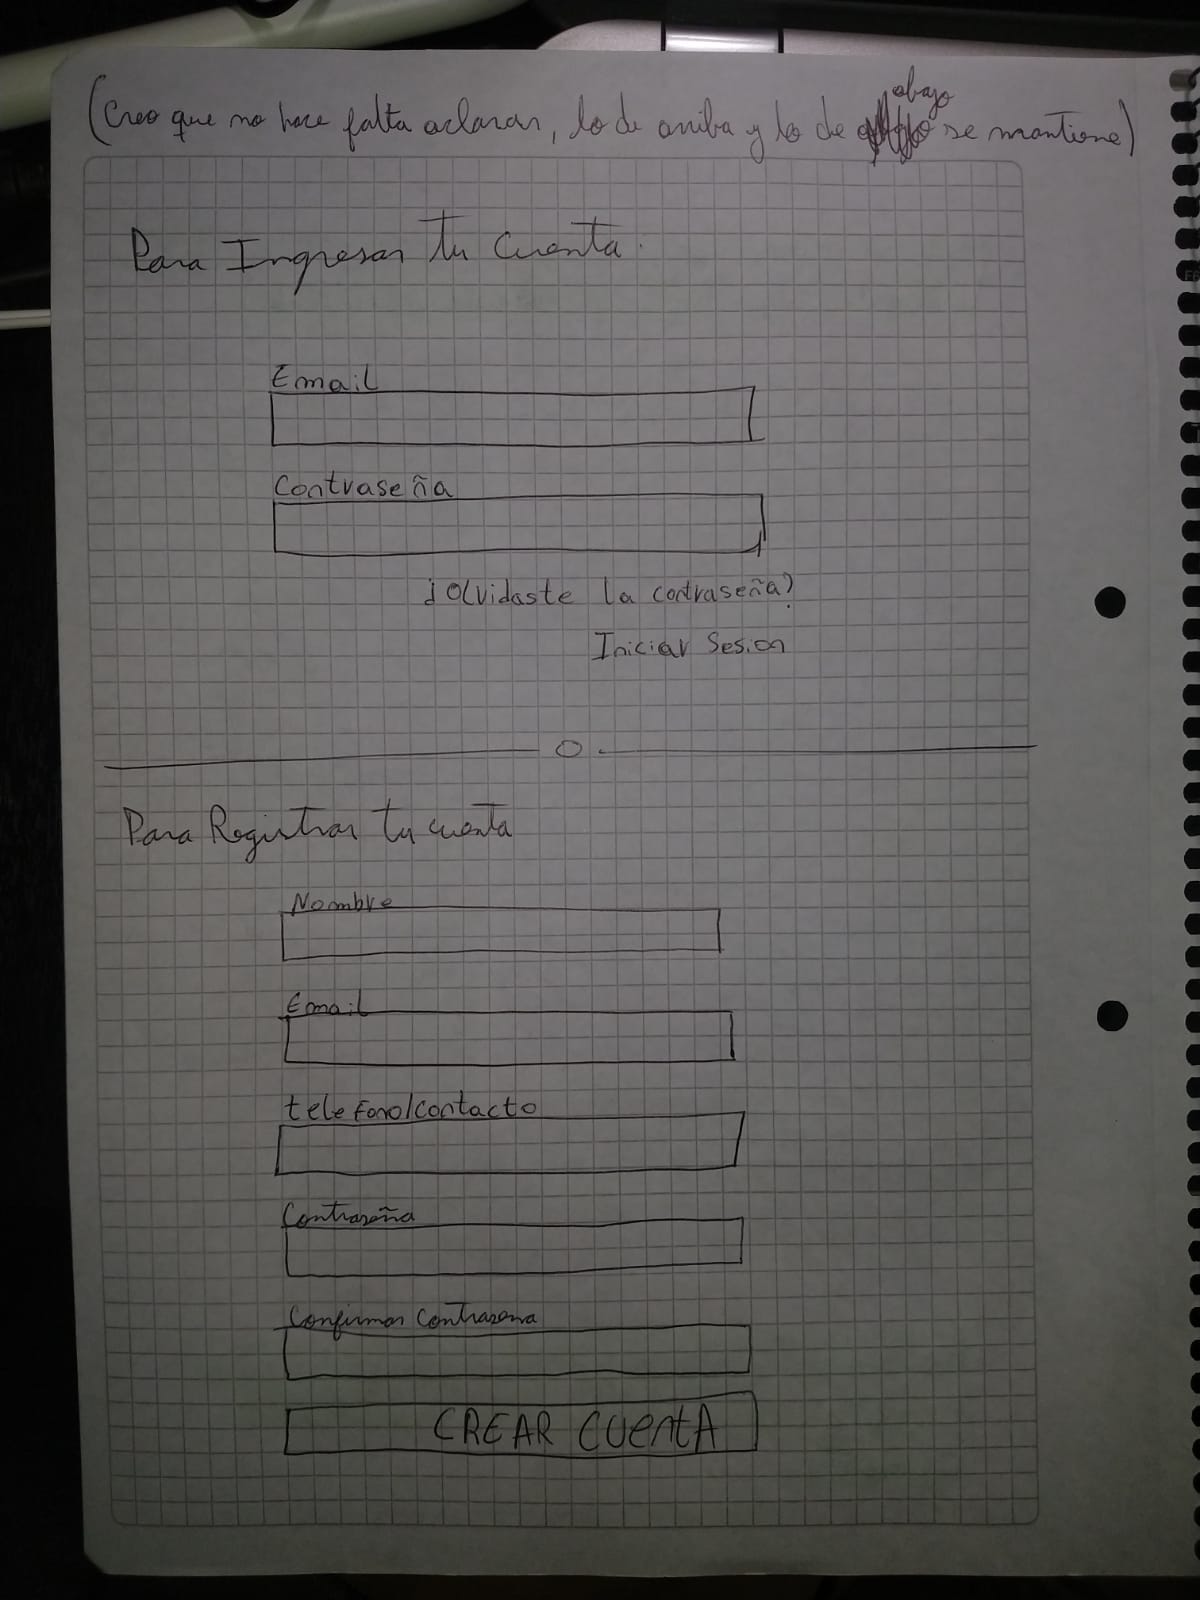 (Creo que no hace falta aclarar, lo de arriba y lo de abajo se mantiene)
Para Ingresar tu cuenta.
Email
Contraseña
¿Olvidaste la contraseña?
Iniciar Sesion
Para Registrar tu cuenta
Nombre
Email
telefono/contacto
Contraseña
Confirmar Contrasena
CREAR CUENTA